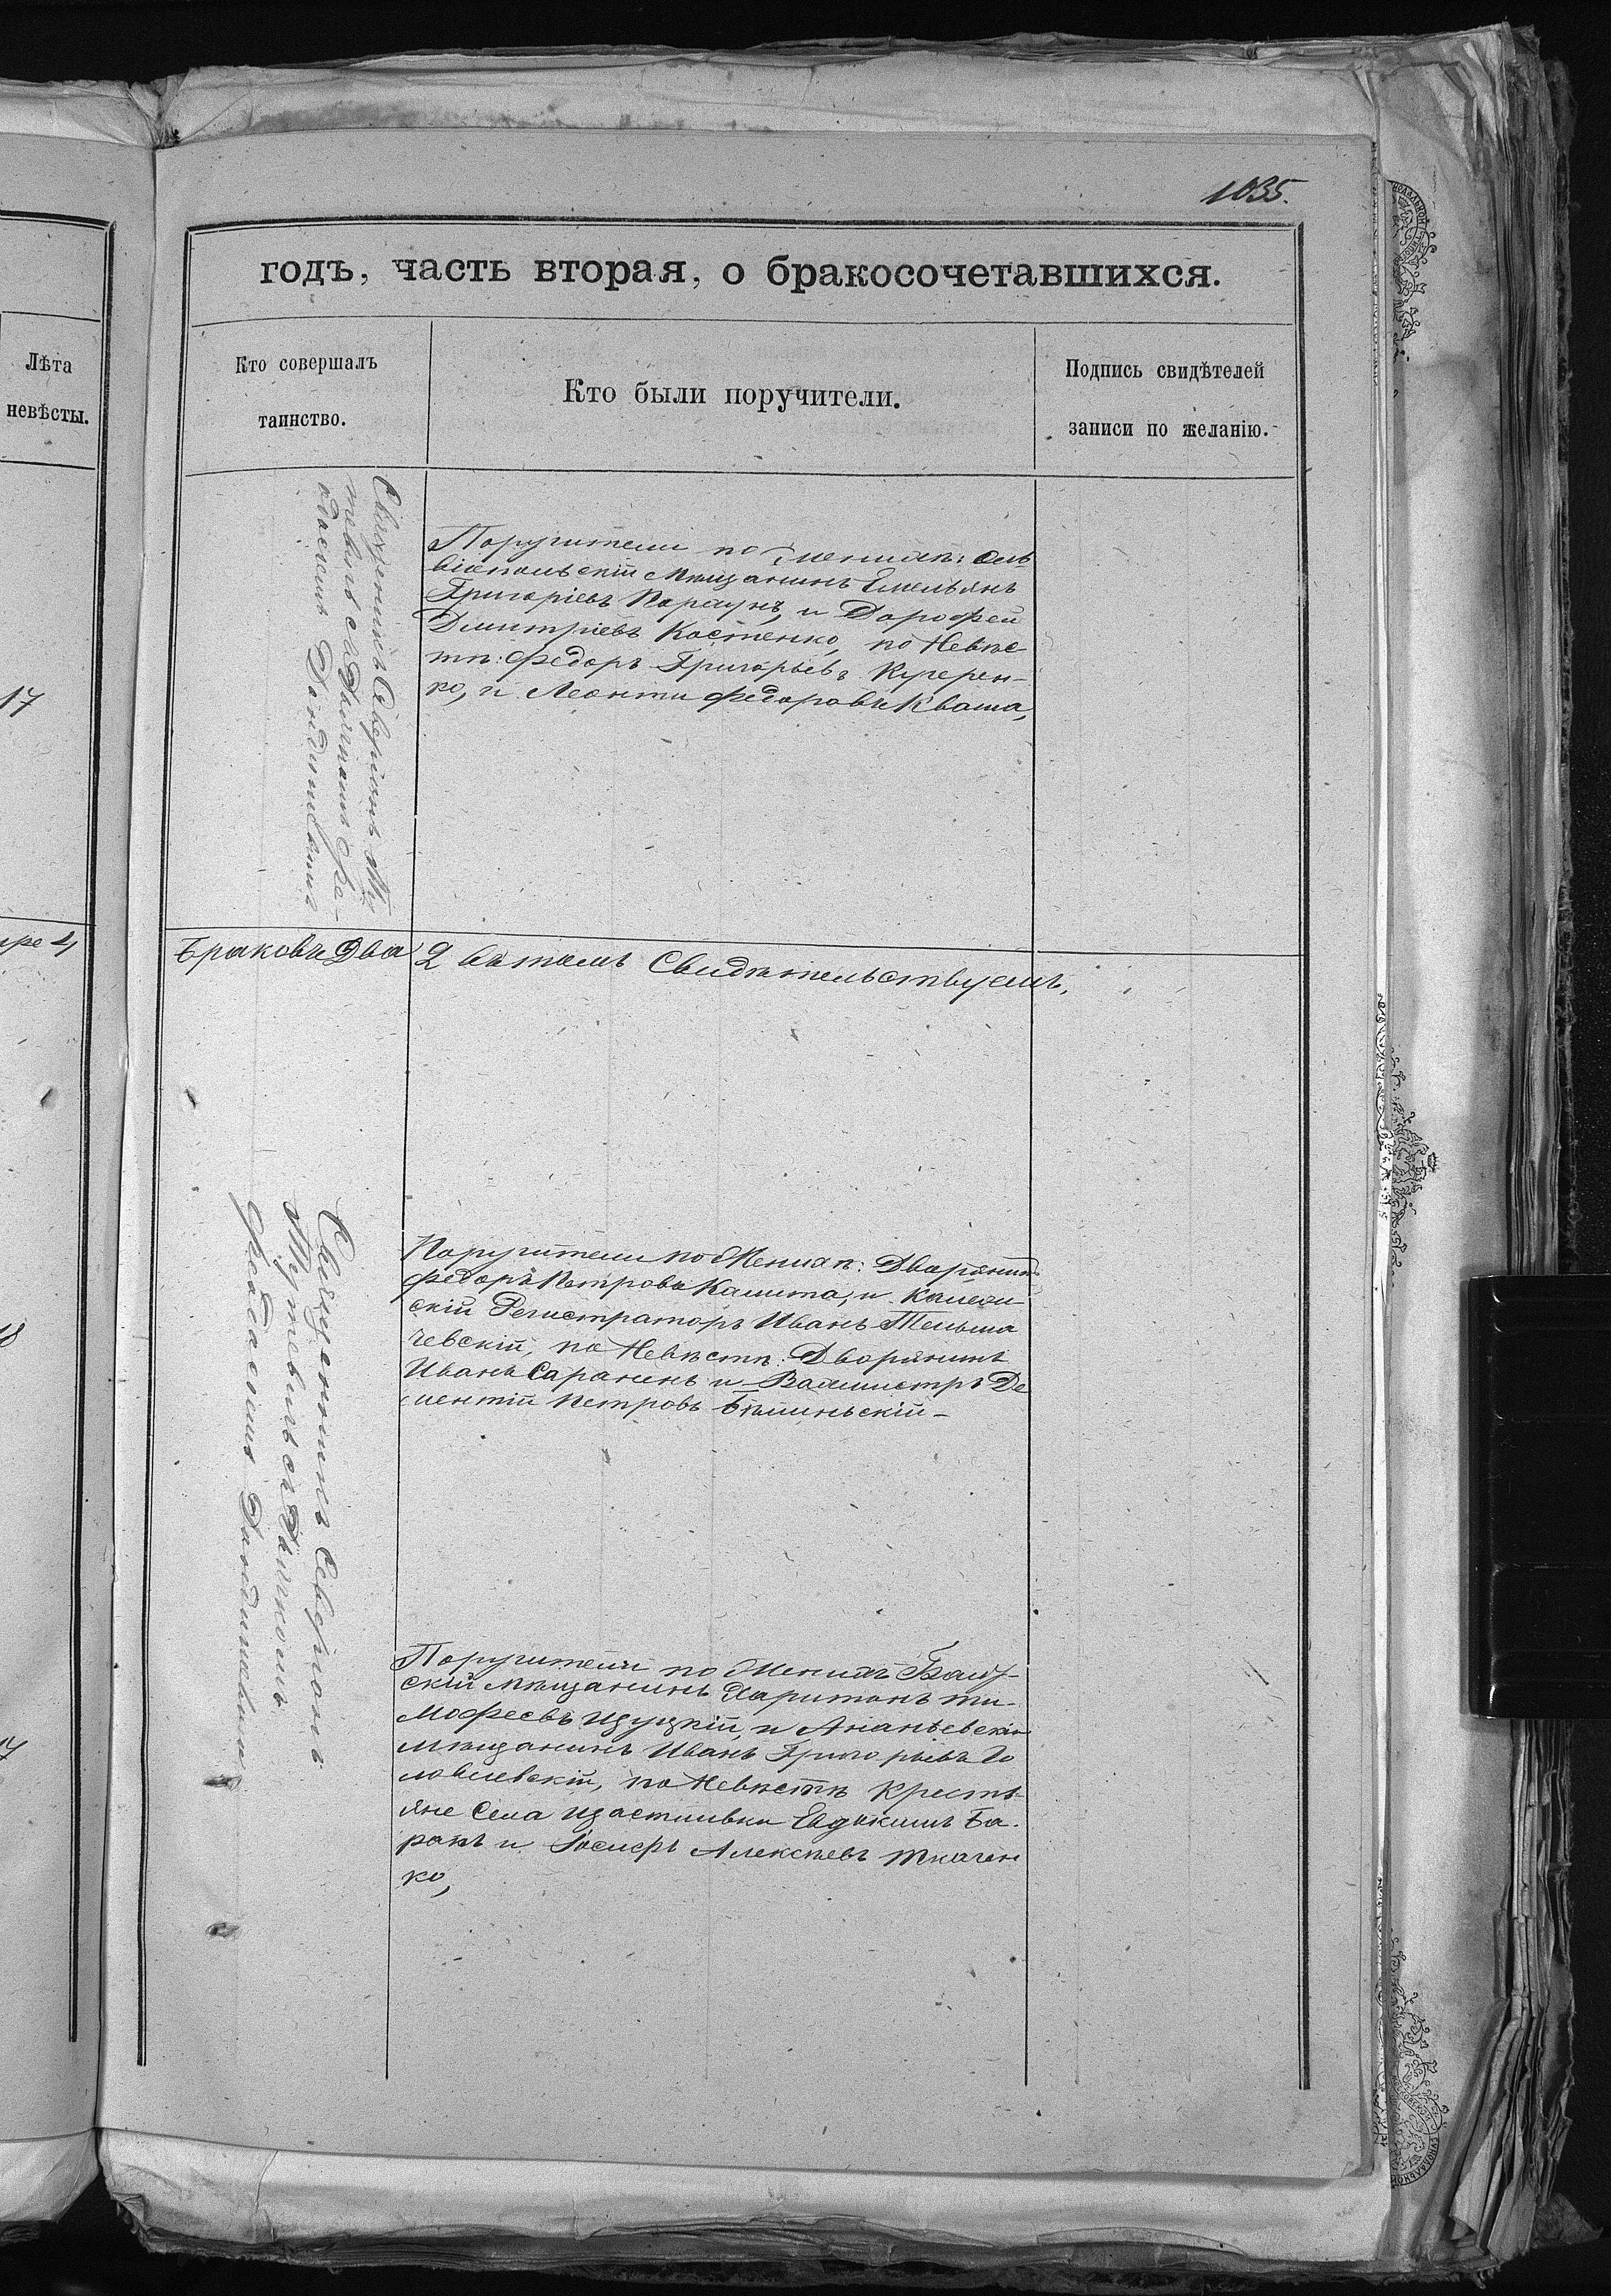 1035.
годъ, часть вторая, о бракосочетавшихся.
Лѣта
невѣсты.
Кто совершалъ
таинство.
Кто были поручители.
Подпись свидѣтелей
записи по желанію.
17
Священникъ Северіанъ Му
тевичъ съ Дьячкомъ Ѳе-
одосіемъ
Поручители по Жениха: Оль
віопольскій мѣщанинъ Емельянъ
Григоріевъ и Дорофей
Димитріевъ Костенко, по Невѣс-
тѣ: Федоръ Григорьевъ Кучерен-
ко, и Леонти Федоровъ Кваша,
4
Браковъ Два
2 въ томъ Свидѣтельствуемъ.
18
Священникъ Северіанъ
Мутевичъ съ Дьячкомъ
Ѳеодосіемъ
Поручители по Жениха: Дворянинъ
Федоръ Петровъ и Колежи-
скій Регистраторъ Иванъ Тельма
чевскій, по Невѣстѣ: Дворянинъ
Иванъ и Вахмистръ Де
ментій Петровъ
17
Поручители по Жениха
скій мѣщанинъ Харитонъ Ти-
мофеевъ и Ананьевскій
мѣщанинъ Иванъ Григорьевъ Го
ловлевскій, по Невѣстѣ Кресть-
яне Села Щастливки Евдокимъ Ба-
ранъ и Іосифъ Алексѣевъ Ткачен
ко,